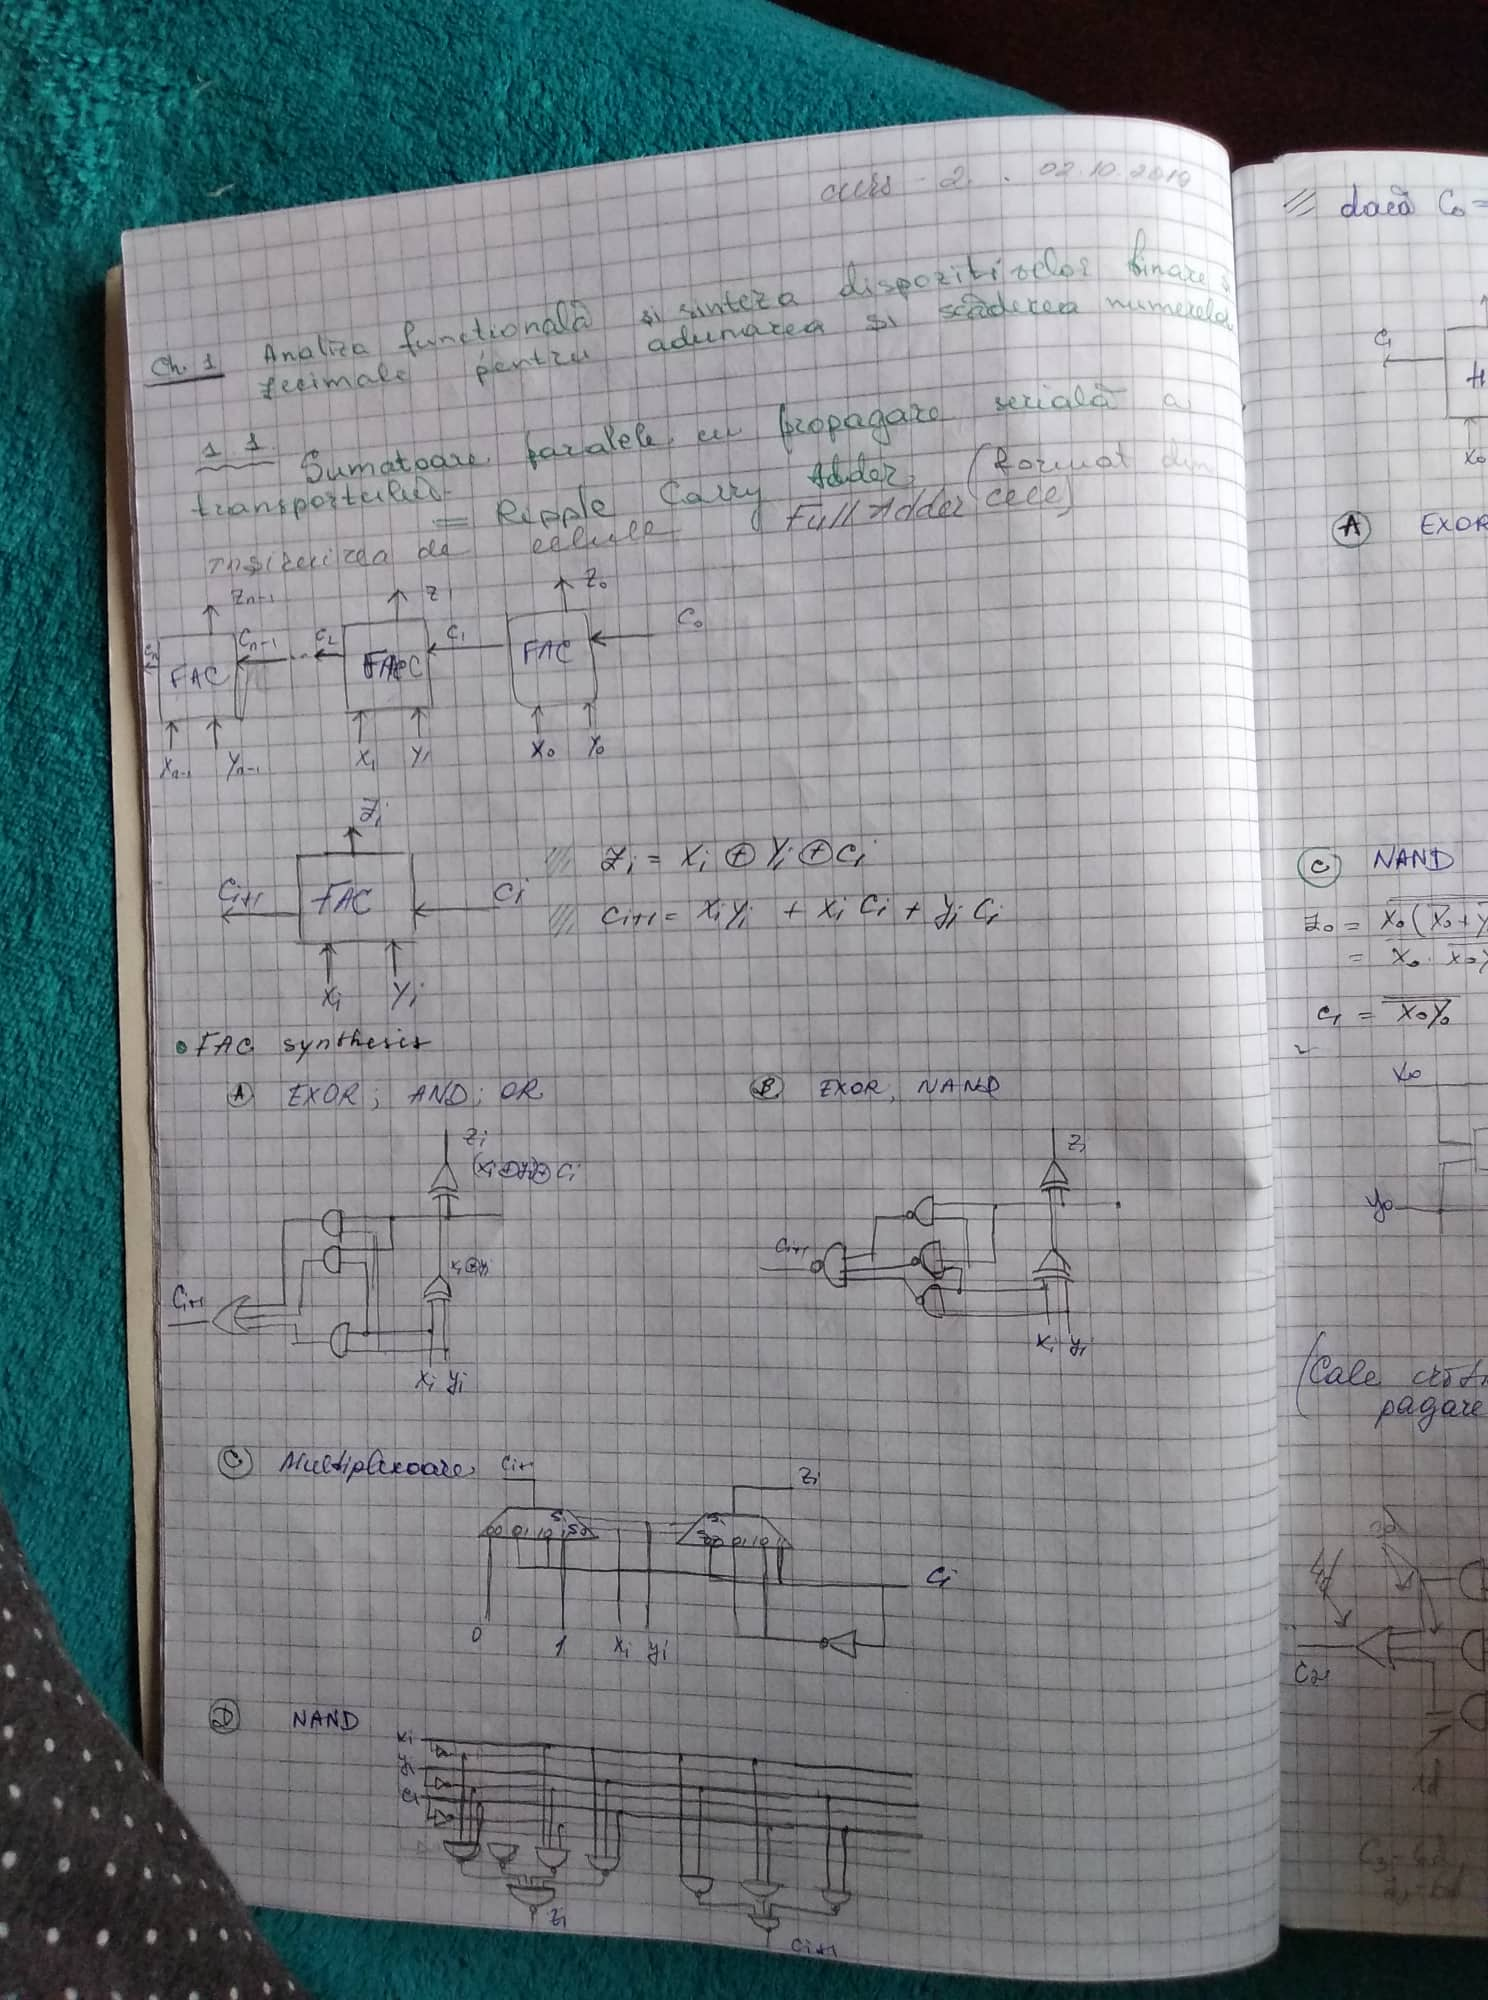 curs - 2. 02.10.2019
Ch. 1 Analiza functională si sinteza dispozitivelor binare si
zecimale pentru adunarea si scăderea numerelor
1.1. Sumatoare paralele cu propagare serială a
transportului
= Ripple Carry Adder (format din
de celule Full Adder Cell)
Zn-1 Z1 Z0
Cn FAC Cn-1 ... C2 FAC C1 FAC C0
Xn-1 Yn-1 X1 Y1 X0 Y0
Zi
Ci+1 FAC Ci
Xi Yi
Zi = Xi ⊕ Yi ⊕ Ci
Ci+1 = XiYi + XiCi + YiCi
• FAC synthesis
(A) EXOR; AND; OR
Zi
(Xi⊕Yi)⊕Ci
Xi⊕Yi
Ci+1
Xi Yi
(B) EXOR, NAND
Zi
Ci+1
Xi Yi
(C) Multiplexoare
Ci+1 Zi
00 01 10 S1 S0
S1 S0 00 01 10
Ci
0 1 Xi Yi
(D) NAND
Xi
Yi
Ci
Zi
Ci+1
// dacă C0 =
C1 H
X0
(A) EXOR
(C) NAND
Z0 = X0(X0+Y
= X0 · X0Y
C1 = X0Y0
X0
Y0
(Cale criti
pagare
4d
C2
1d